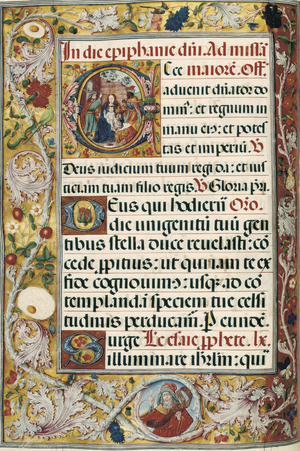 In die epiphanie dñi. Ad missã
Ecce maiorẽ. Off.
advenit dñator do
minus: et regnum in
manu eius: et potes
tas et imperiũ. V
Deus iudicium tuum regi da: et ius
ticiam tuam filio regis. V Gloria pr̃i.
Deus qui hodierñ Oro.
die unigenitũ tuũ gen
tibus stella duce revelasti: cõ
cede ppitius: ut qui iam te ex
fide cognovim9: usq3 ad cõ
templandã speciem tue celsi
tudinis perducam2. P eundẽ
Surge Lc̃o esaie pphete. lx.
illuminare ihrlm: qui